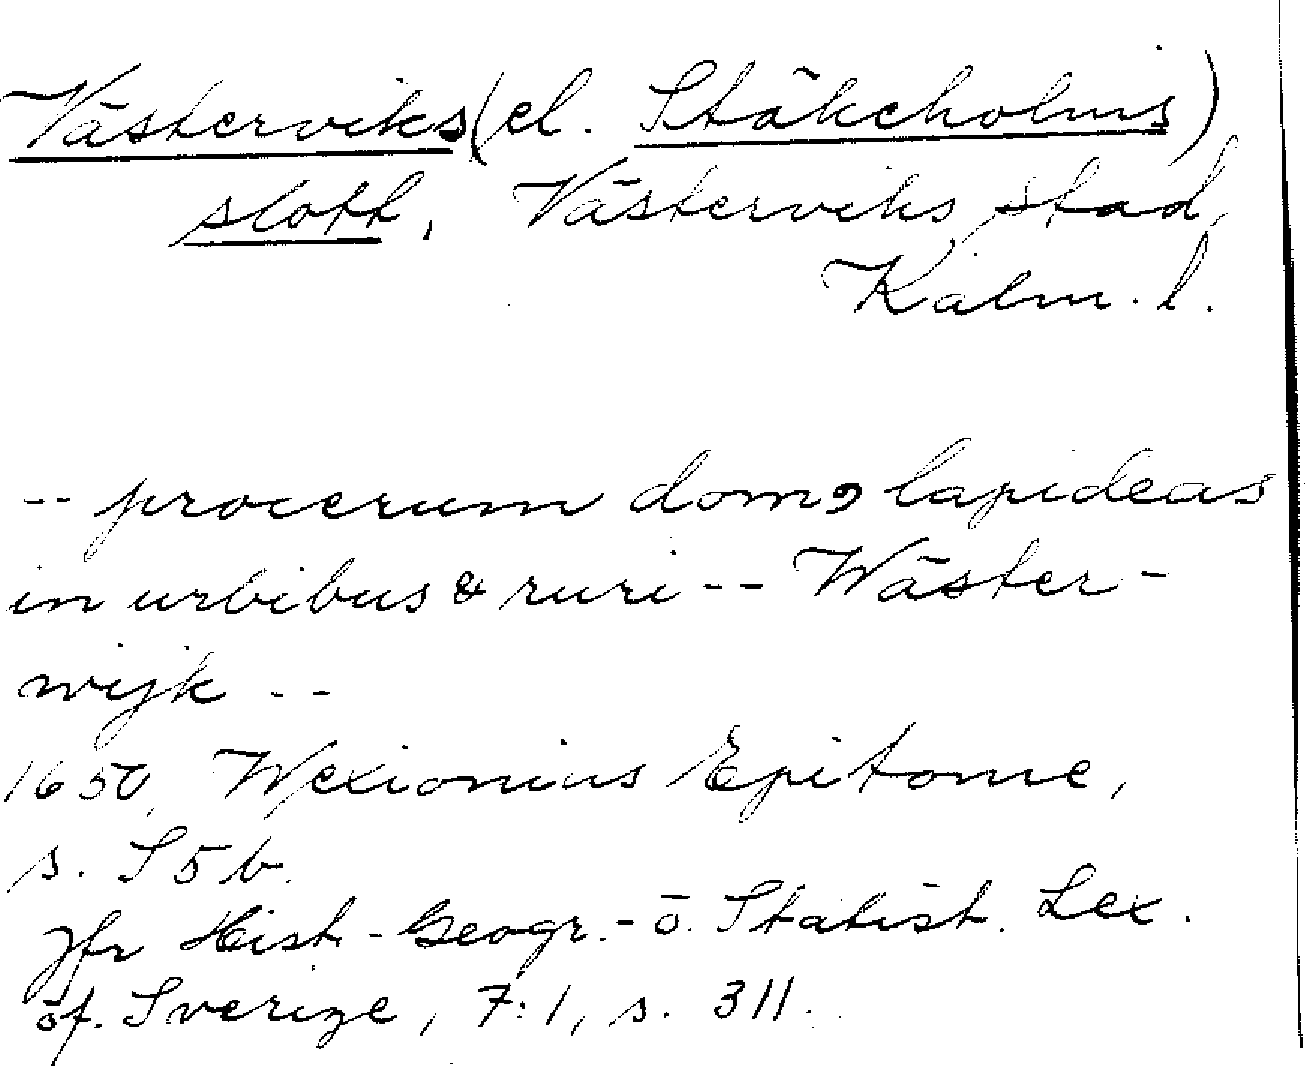 Västerviks (el. Stäkeholms)
slott, Västerviks stad,
Kalm. l.
-- procerum domꝰ lapideas
in urbibus & ruri -- Wäster-
wijk --
1650, Wexionius Epitome,
s. S5b.
Jfr Hist.-Geogr.-o. Statist. Lex.
öf. Sverige, 7:1, s. 311.